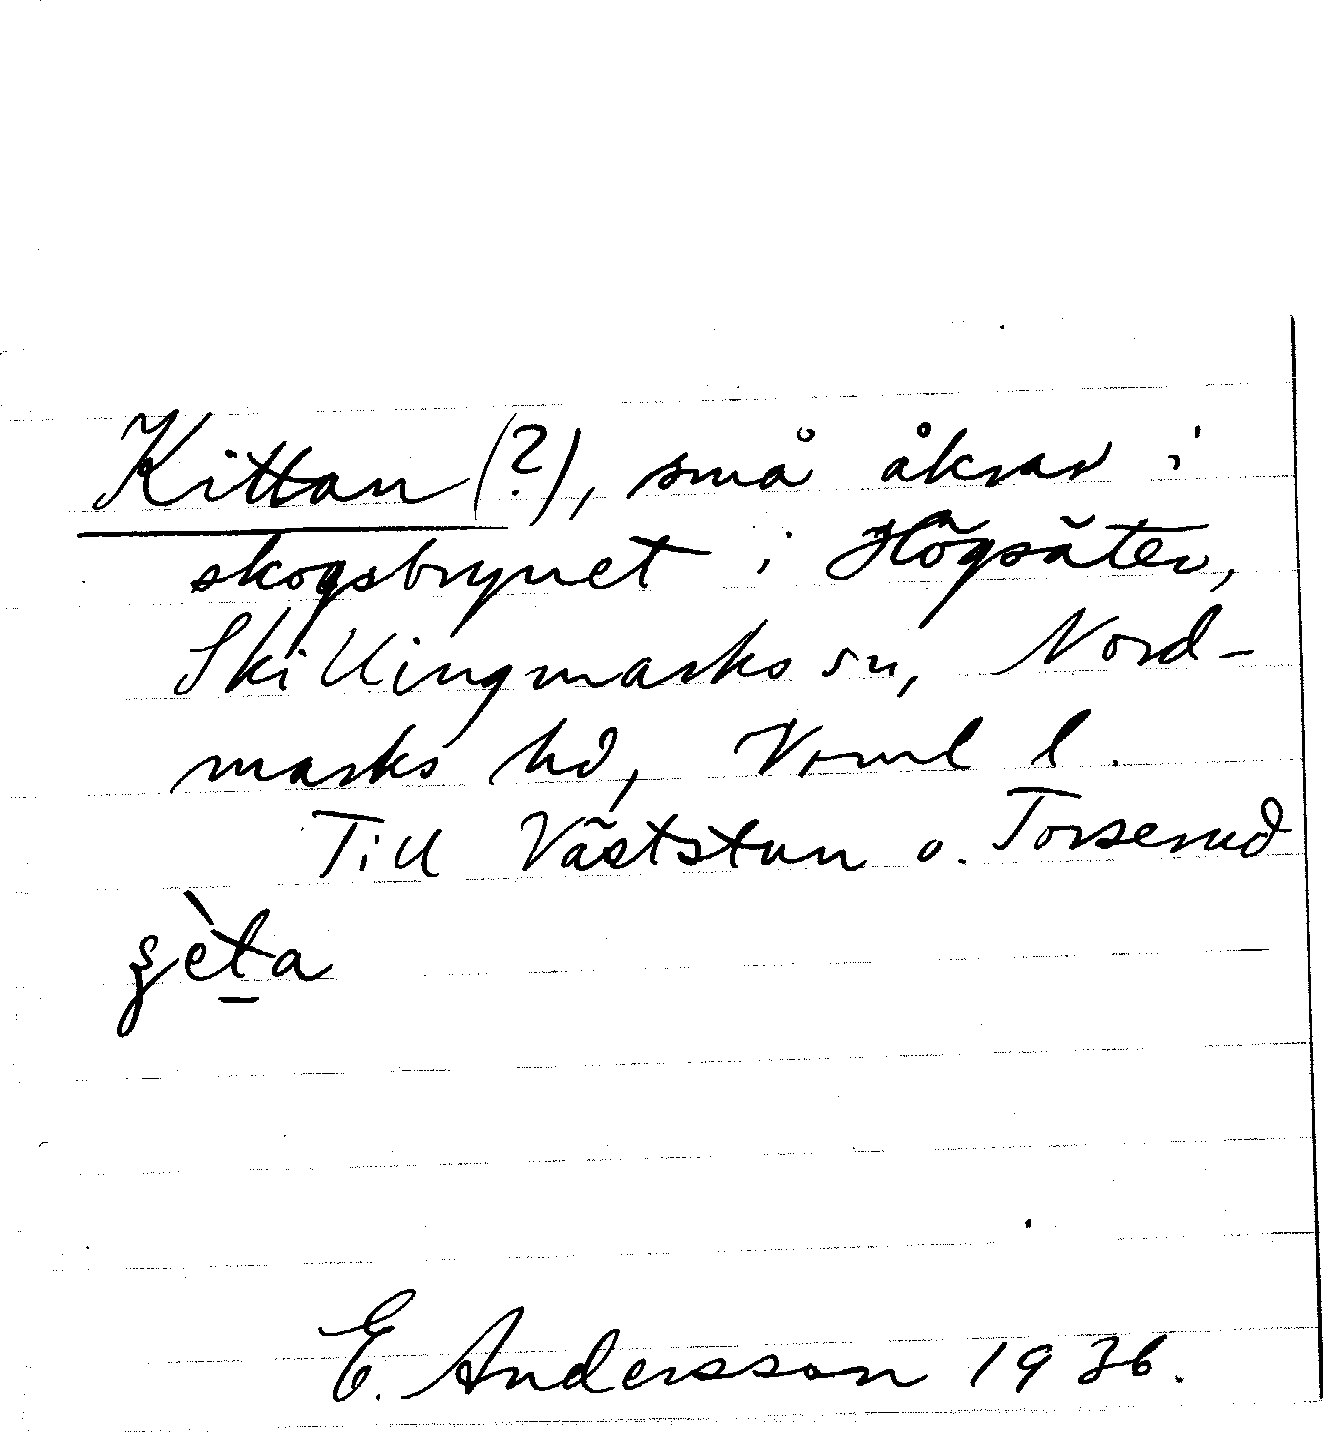 Kittan (?), små åkrar i
skogsbrynet i Högsäter,
Skillingmarks sn, Nord-
marks hd, Vrml l.
Till Väststun o. Torserud
E. Andersson 1936.